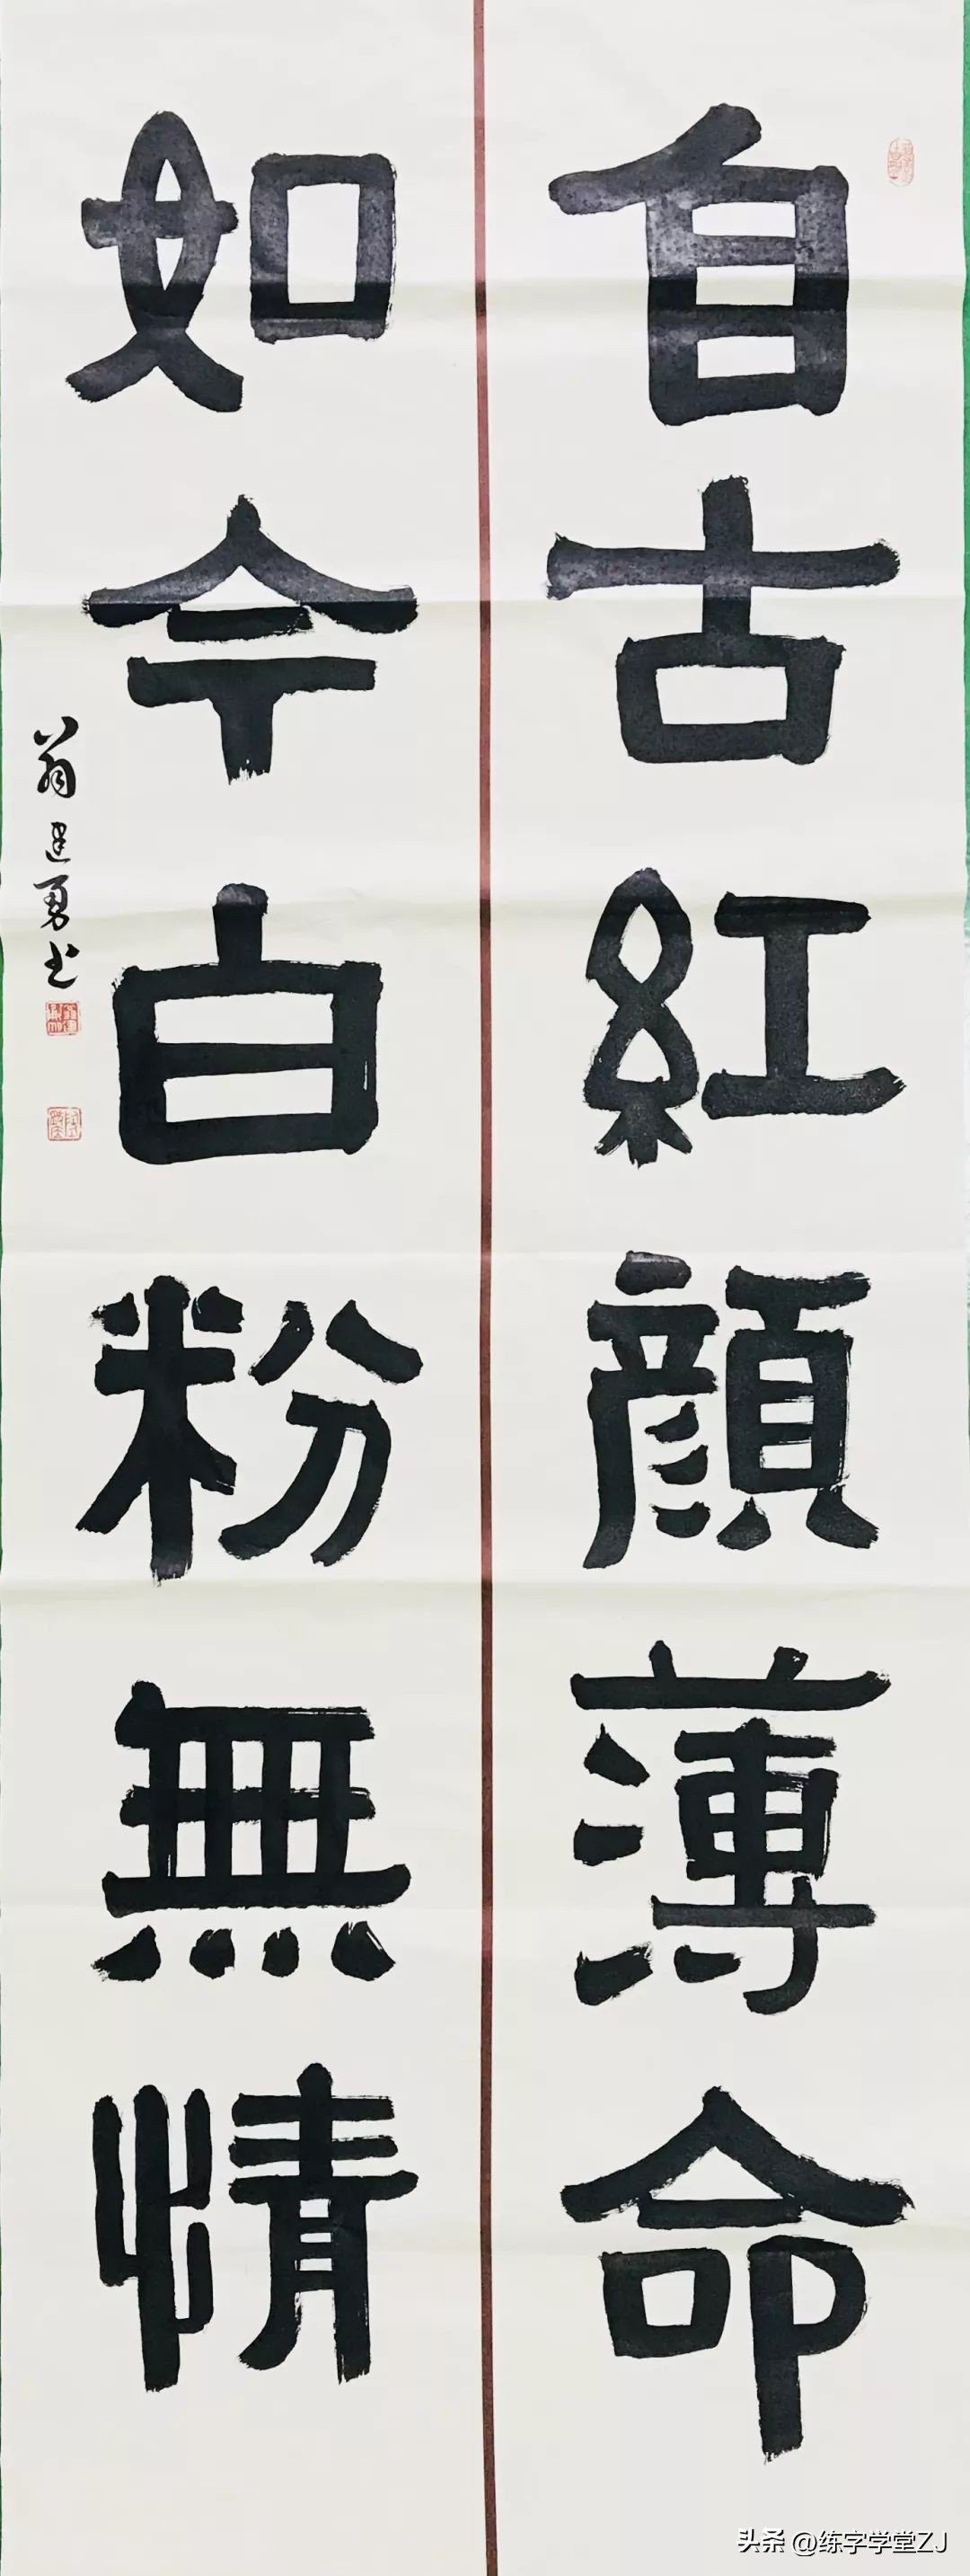 自古紅顏薄命
如今白粉無情
翁建勇书
头条 @练字学堂ZJ